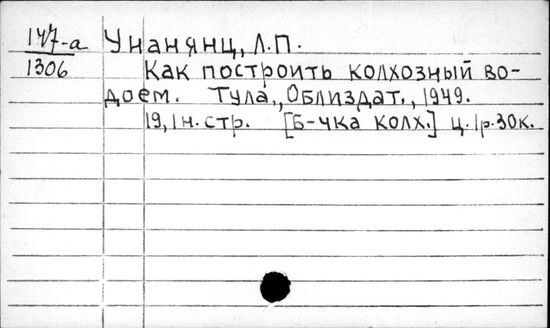 147-а Унанянц, Л.П.
1306 Как построить колхозный во-
доем. Тула, Облиздат., 1949.
19, 1 н. стр. [Б-чка колх.] ц. 1р.30к.